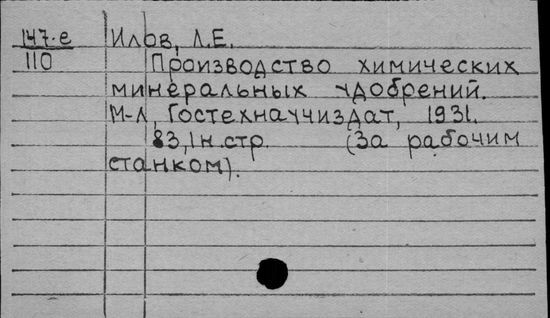 147-е Илов, Л.Е.
110 Производство химических
минеральных удобрений.
М-Л, Гостехнаучиздат, 1931.
83,1н.стр. (За рабочим
станком).